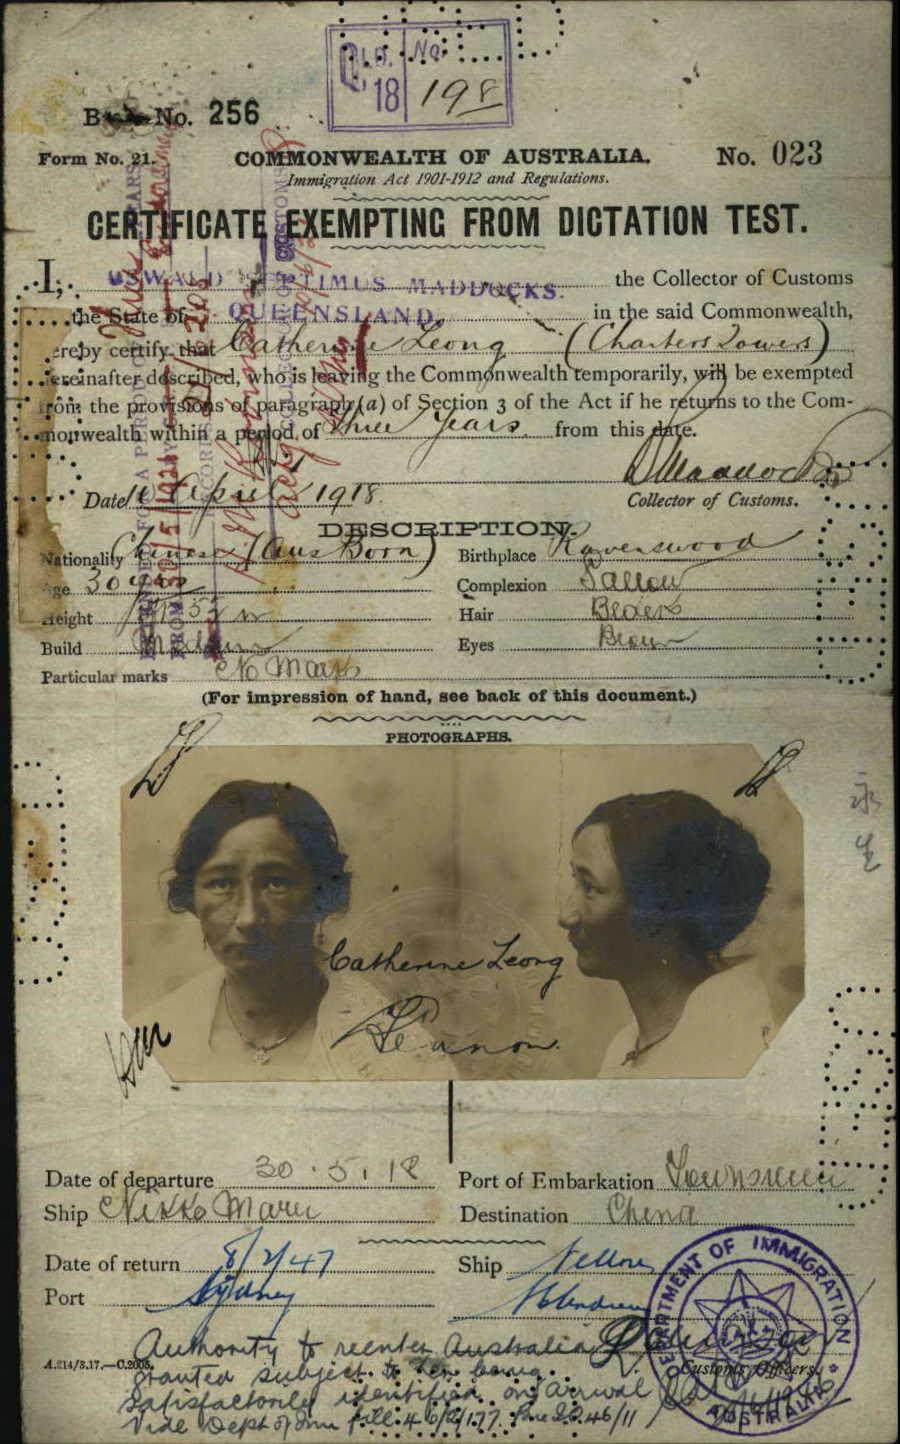 QLD. No.
18 198
Book No. 256
Form No. 21. COMMONWEALTH OF AUSTRALIA. No. 023
Immigration Act 1901-1912 and Regulations.
CERTIFICATE EXEMPTING FROM DICTATION TEST.
I, OSWALD SEPTIMUS MADDOCKS. the Collector of Customs
the State of QUEENSLAND. in the said Commonwealth,
ereby certify that Catherine Leong (Charters Towers)
ereinafter described, who is leaving the Commonwealth temporarily, will be exempted
from the provisions of paragraph (a) of Section 3 of the Act if he returns to the Com-
monwealth within a period of Three Years from this date.
Date 16 April 1918. Collector of Customs.
DESCRIPTION.
Nationality Chinese (Aus Born) Birthplace Ravenswood
Age 30 yrs Complexion Sallow
Height Hair Black
Build Medium Eyes Brown
Particular marks No Marks
(For impression of hand, see back of this document.)
PHOTOGRAPHS.
Catherine Leong
Date of departure 30.5.18 Port of Embarkation Townsville
Ship Nikko Maru Destination China
Date of return 8/2/47 Ship Nellore
Port Sydney
Authority to reenter Australia
A.214/3.17.—C.2005. granted subject to her being Customs Officers.
satisfactorily identified on arrival
Vide Dept of Imm
DEPARTMENT OF IMMIGRATION
AUSTRALIA
永
生